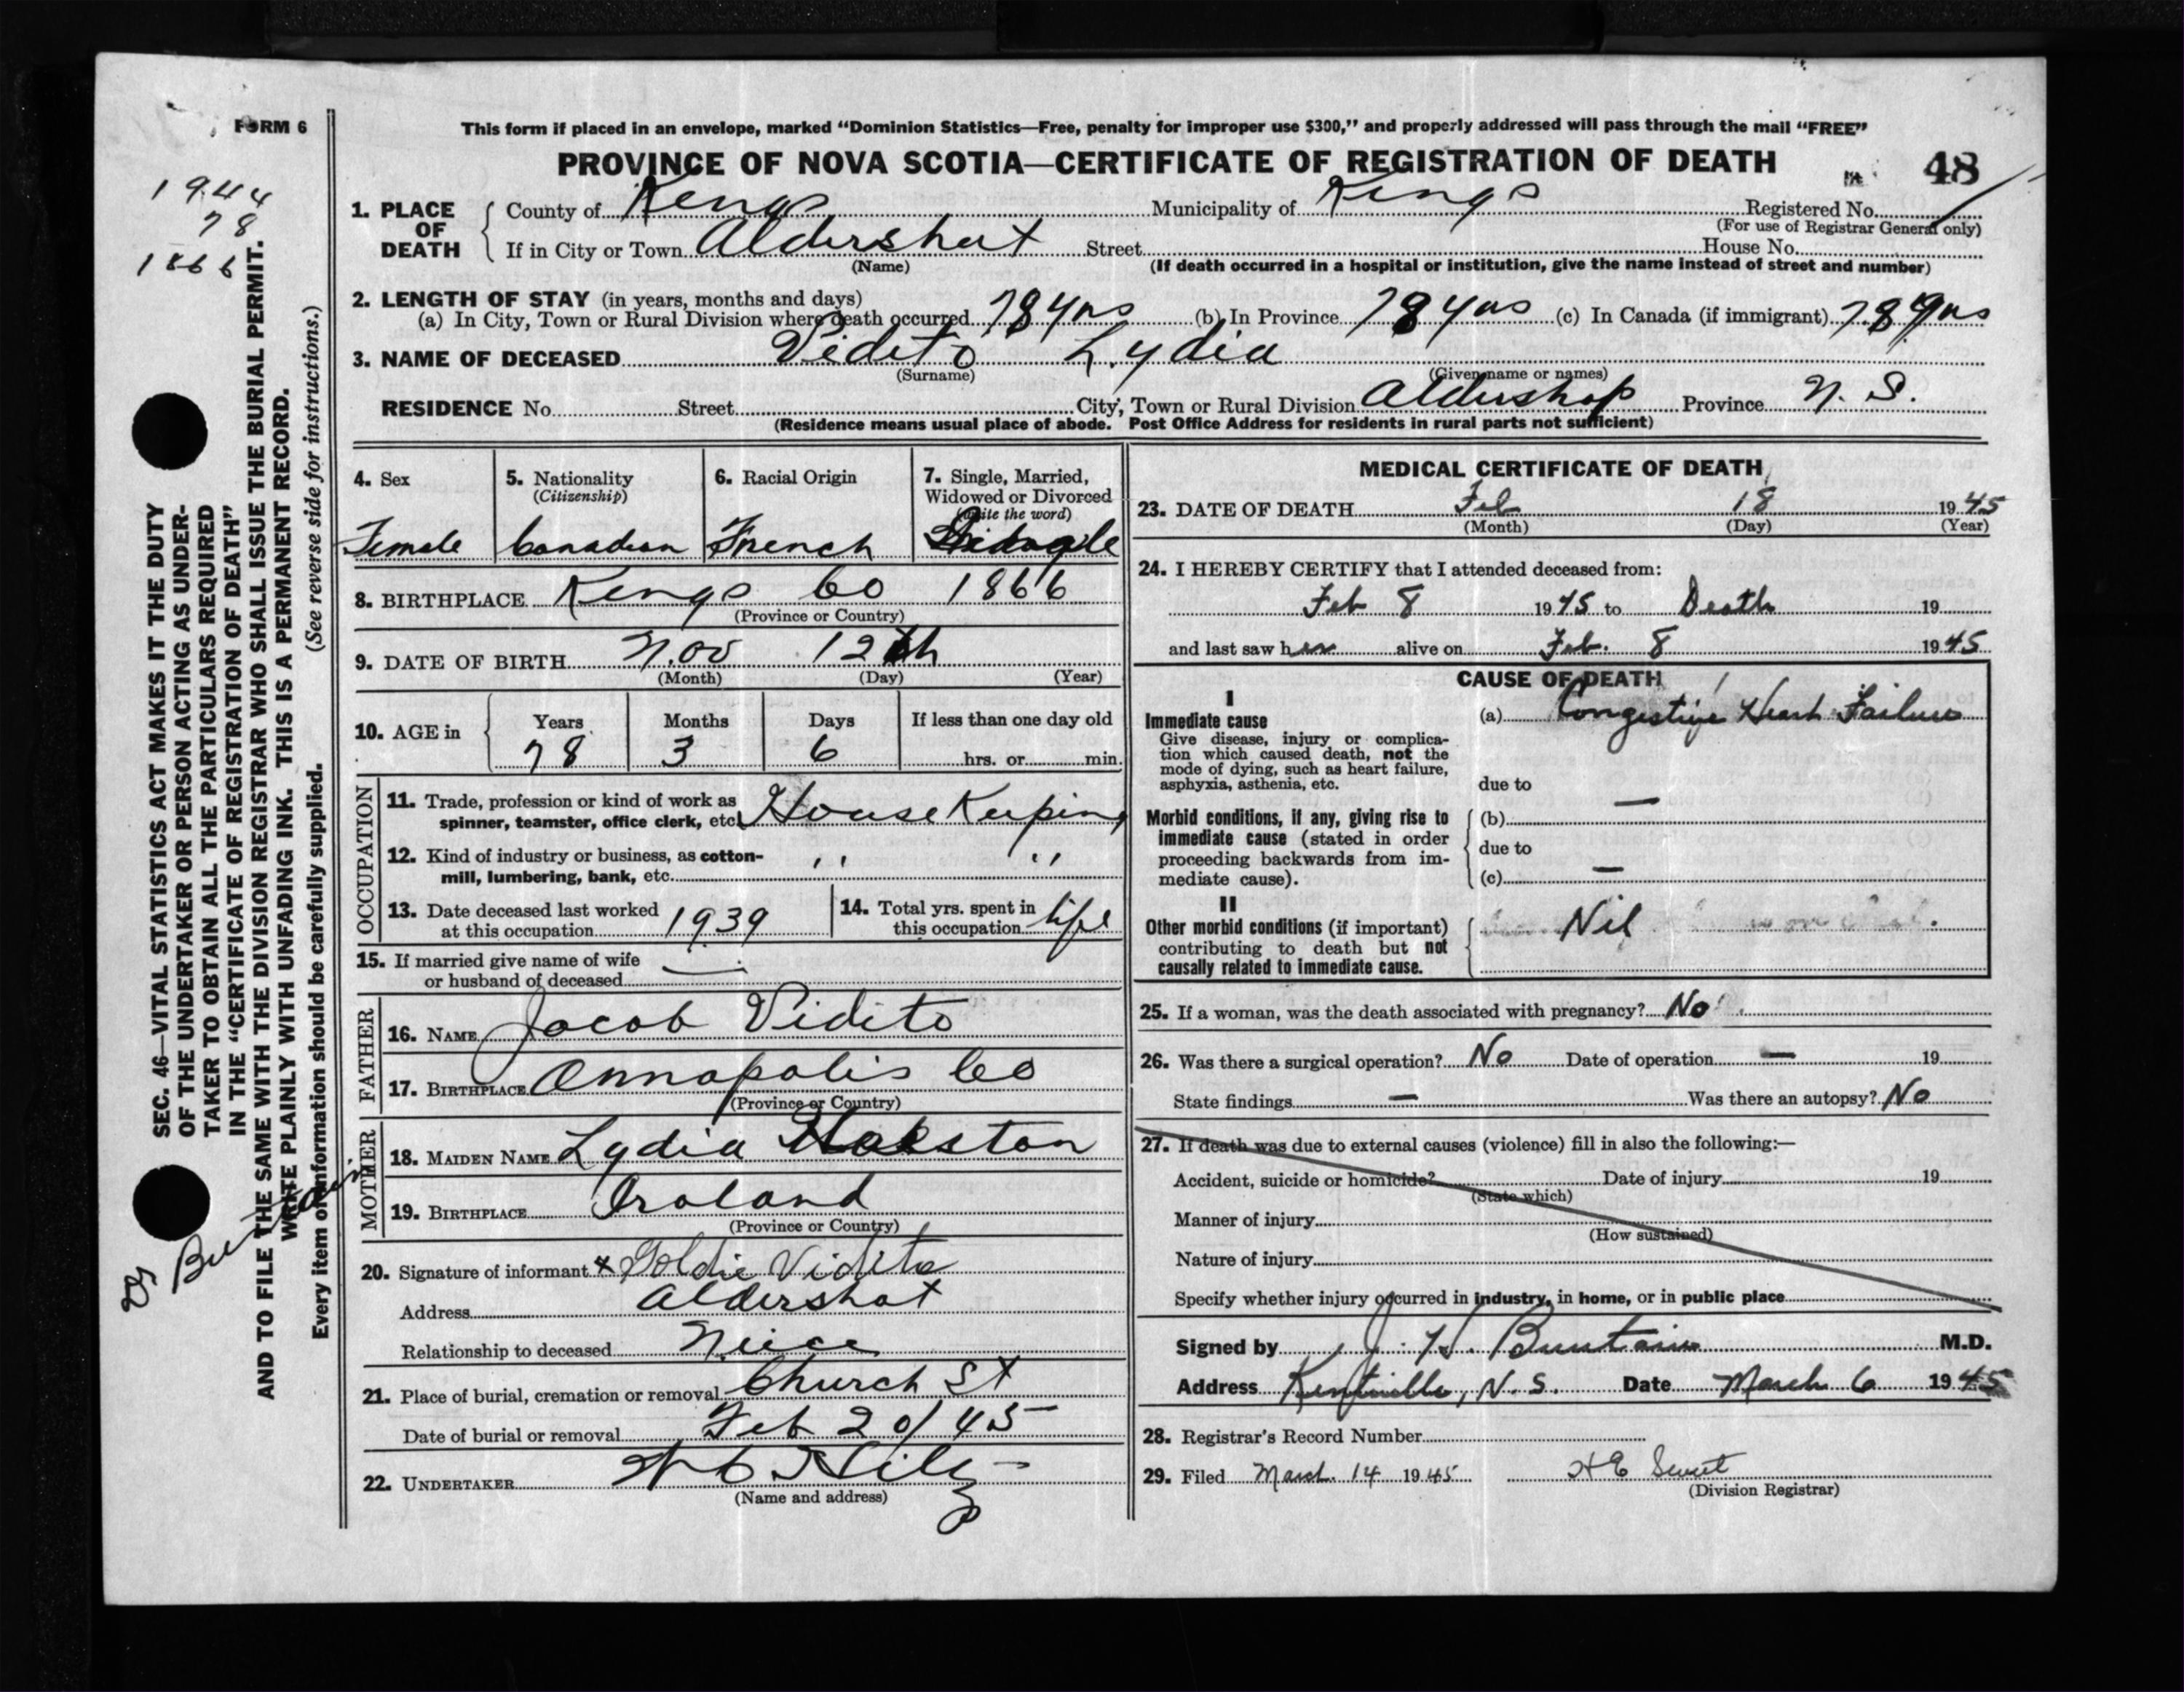 FORM 6
This form if placed in an envelope, marked “Dominion Statistics—Free, penalty for improper use $300,” and properly addressed will pass through the mail “FREE”
PROVINCE OF NOVA SCOTIA—CERTIFICATE OF REGISTRATION OF DEATH
48
1944
78
1866
1. PLACE OF DEATH
County of Kings Municipality of Kings Registered No.
(For use of Registrar General only)
If in City or Town Aldershot Street House No.
(Name) (If death occurred in a hospital or institution, give the name instead of street and number)
2. LENGTH OF STAY (in years, months and days)
(a) In City, Town or Rural Division where death occurred 78 yrs (b) In Province 78 yrs (c) In Canada (if immigrant) 78 yrs
3. NAME OF DECEASED Vidito Lydia
(Surname) (Given name or names)
RESIDENCE No. Street City, Town or Rural Division Aldershop Province N. S.
(Residence means usual place of abode. Post Office Address for residents in rural parts not sufficient)
4. Sex
Female
5. Nationality
(Citizenship)
Canadian
6. Racial Origin
French
7. Single, Married,
Widowed or Divorced
(write the word)
8. BIRTHPLACE Kings Co 1866
(Province or Country)
9. DATE OF BIRTH Nov 12th
(Month) (Day) (Year)
10. AGE in Years Months Days If less than one day old
78 3 6 hrs. or min.
OCCUPATION
11. Trade, profession or kind of work as
spinner, teamster, office clerk, etc. House Keeping
12. Kind of industry or business, as cotton-
mill, lumbering, bank, etc. " "
13. Date deceased last worked
at this occupation 1939
14. Total yrs. spent in
this occupation life
15. If married give name of wife
or husband of deceased —
FATHER
16. NAME Jacob Vidito
17. BIRTHPLACE Annapolis Co
(Province or Country)
MOTHER
18. MAIDEN NAME Lydia
19. BIRTHPLACE Iroland
(Province or Country)
20. Signature of informant x Goldie Vidito
Address Aldershot
Relationship to deceased Niece
21. Place of burial, cremation or removal Church St
Date of burial or removal Feb 20/45
22. UNDERTAKER
(Name and address)
MEDICAL CERTIFICATE OF DEATH
23. DATE OF DEATH Feb 18 1945
(Month) (Day) (Year)
24. I HEREBY CERTIFY that I attended deceased from:
Feb 8 1945 to Death 19
and last saw her alive on Feb. 8 1945
CAUSE OF DEATH
I
Immediate cause
Give disease, injury or complica-
tion which caused death, not the
mode of dying, such as heart failure,
asphyxia, asthenia, etc.
(a) Congestive Heart Failure
due to
Morbid conditions, if any, giving rise to
immediate cause (stated in order
proceeding backwards from im-
mediate cause).
(b) —
due to
(c) —
II
Other morbid conditions (if important)
contributing to death but not
causally related to immediate cause.
Nil
25. If a woman, was the death associated with pregnancy? No
26. Was there a surgical operation? No Date of operation — 19
State findings — Was there an autopsy? No
27. If death was due to external causes (violence) fill in also the following:—
Accident, suicide or homicide? Date of injury 19
(State which)
Manner of injury
(How sustained)
Nature of injury
Specify whether injury occurred in industry, in home, or in public place
Signed by J. H. Buntain M.D.
Address Kentville, N.S. Date March 6 1945
28. Registrar's Record Number
29. Filed March 14 1945
(Division Registrar)
SEC. 46—VITAL STATISTICS ACT MAKES IT THE DUTY
OF THE UNDERTAKER OR PERSON ACTING AS UNDER-
TAKER TO OBTAIN ALL THE PARTICULARS REQUIRED
IN THE “CERTIFICATE OF REGISTRATION OF DEATH”
AND TO FILE THE SAME WITH THE DIVISION REGISTRAR WHO SHALL ISSUE THE BURIAL PERMIT.
WRITE PLAINLY WITH UNFADING INK. THIS IS A PERMANENT RECORD.
Every item of information should be carefully supplied. (See reverse side for instructions.)
Buntain